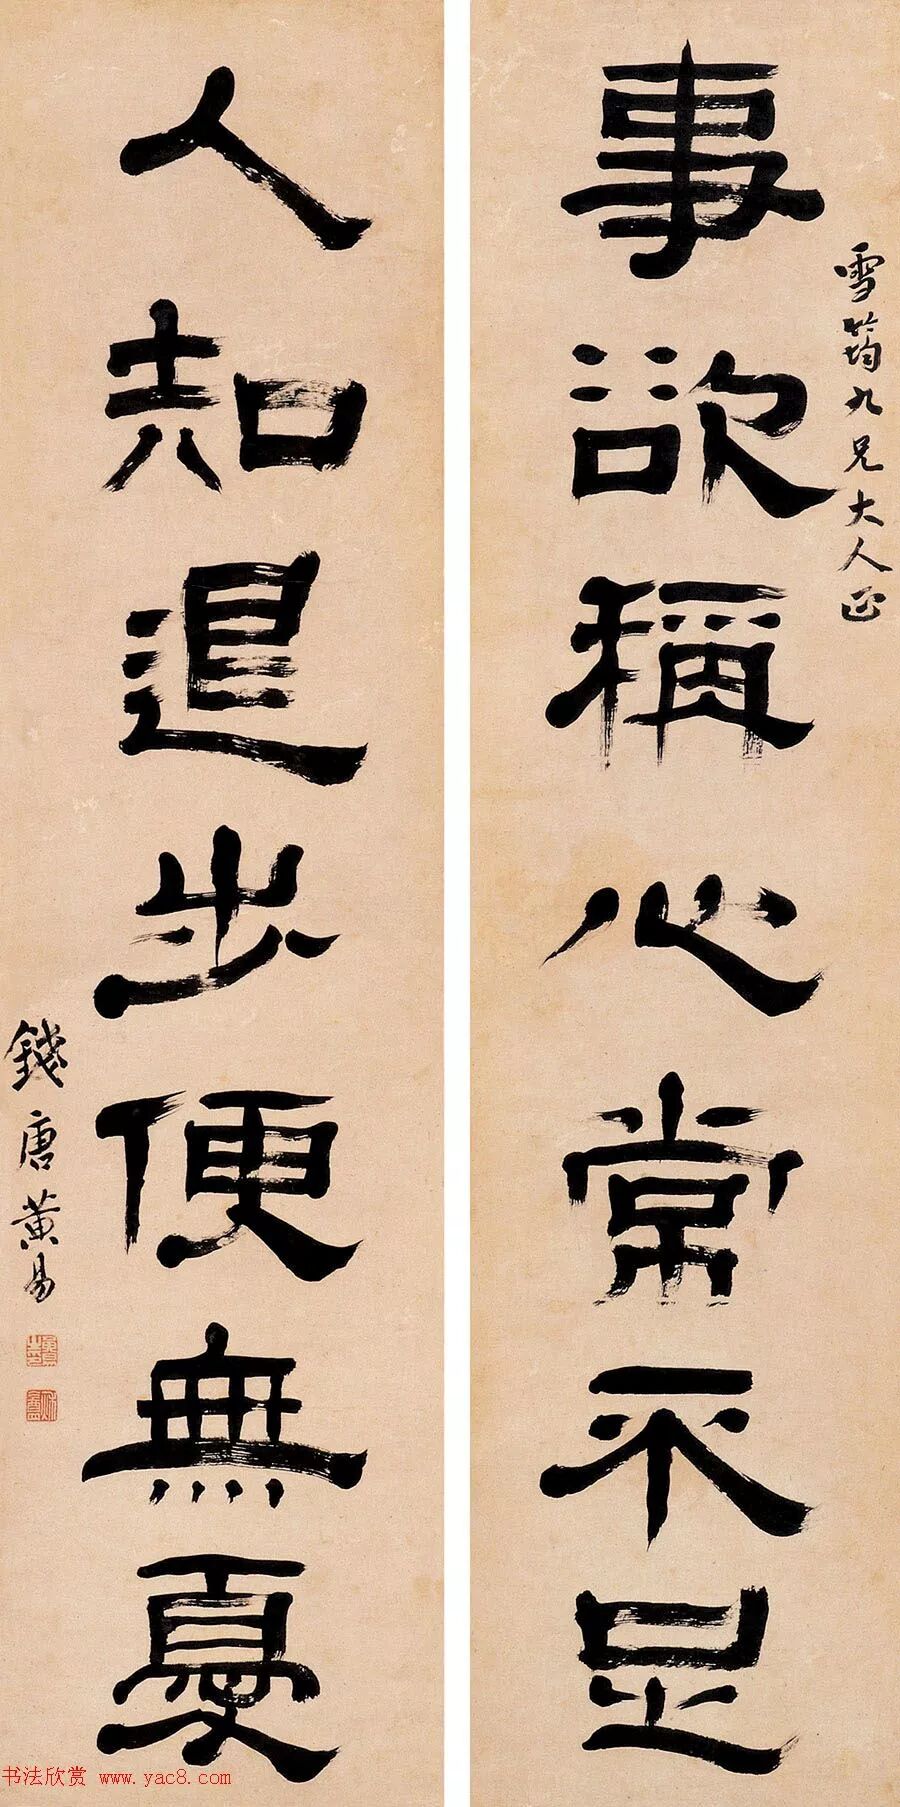 雪筠九兄大人正
事欲稱心常不足
人知退步便無憂
錢唐黃易
书法欣赏 www.yac8.com